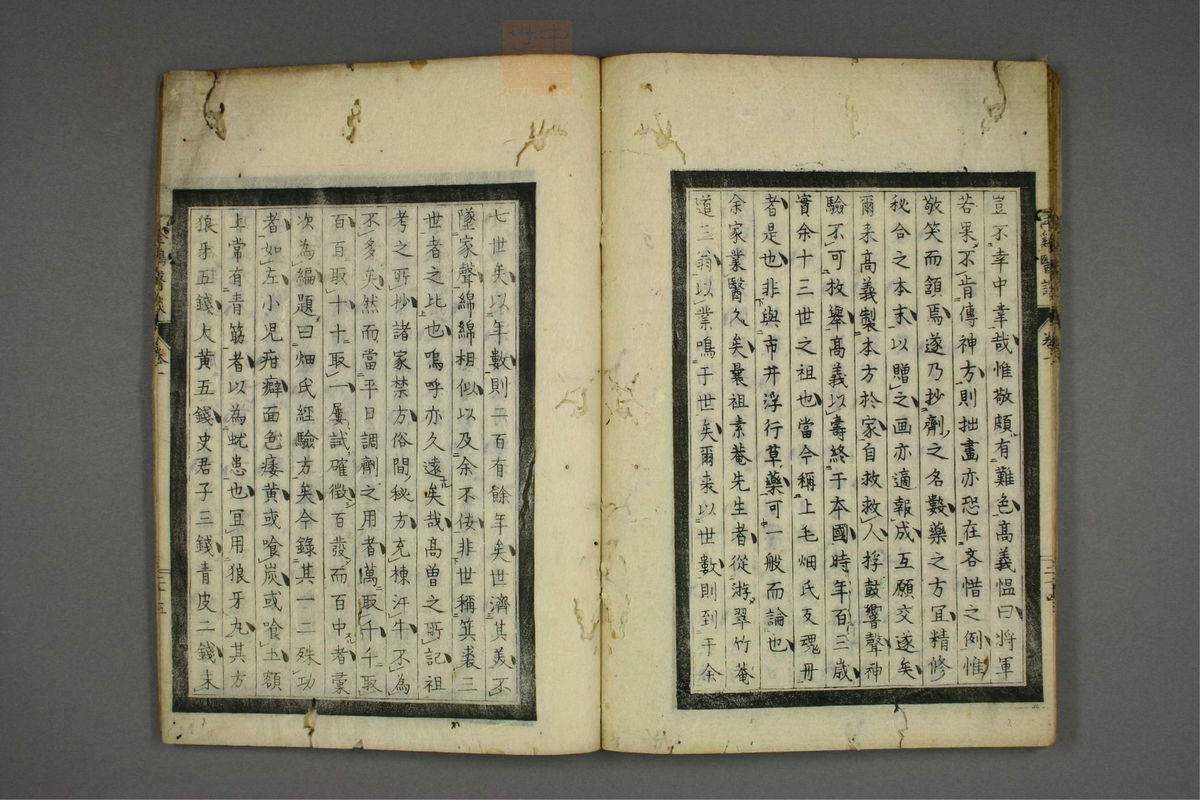 豈不幸中幸哉惟敬頗有難色高義愠曰将軍
若果不肯傳神方則拙畫亦恐在吝惜之例惟
敬笑而頷焉遂乃抄劑之名數藥之方宜精修
秘合之本末以贈之画亦適報成互願交遂矣
爾来高義製本方於家自救救人桴鼓響聲神
驗不可枚舉高義以壽終于本國時年百三歲
實余十三世之祖也當今稱上毛畑氏反魂丹
者是也非與市井浮行草藥可一般而論也
余家業醫久矣曩祖素菴先生者從游翠竹菴
道三翁以業鳴于世矣爾来以世數則到于余
七世矣以年數則二百有餘年矣世濟其美不
墜家聲綿綿相似以及余不佞非世稱箕裘三
世者之比也嗚呼亦久遠矣哉高曽之所記祖
考之所抄諸家禁方俗間秘方充棟汗牛不為
不多矣然而當平日調劑之用者萬取千千取
百百取十十取一屢試確徴百發而百中者彙
次為編題曰畑氏經驗方矣今錄其一二殊功
者如左小児疳癖面色痿黄或喰炭或喰土額
上常有青筋者以為蚘患也冝用狼牙丸其方
狼牙五錢大黄五錢史君子三錢青皮二錢末